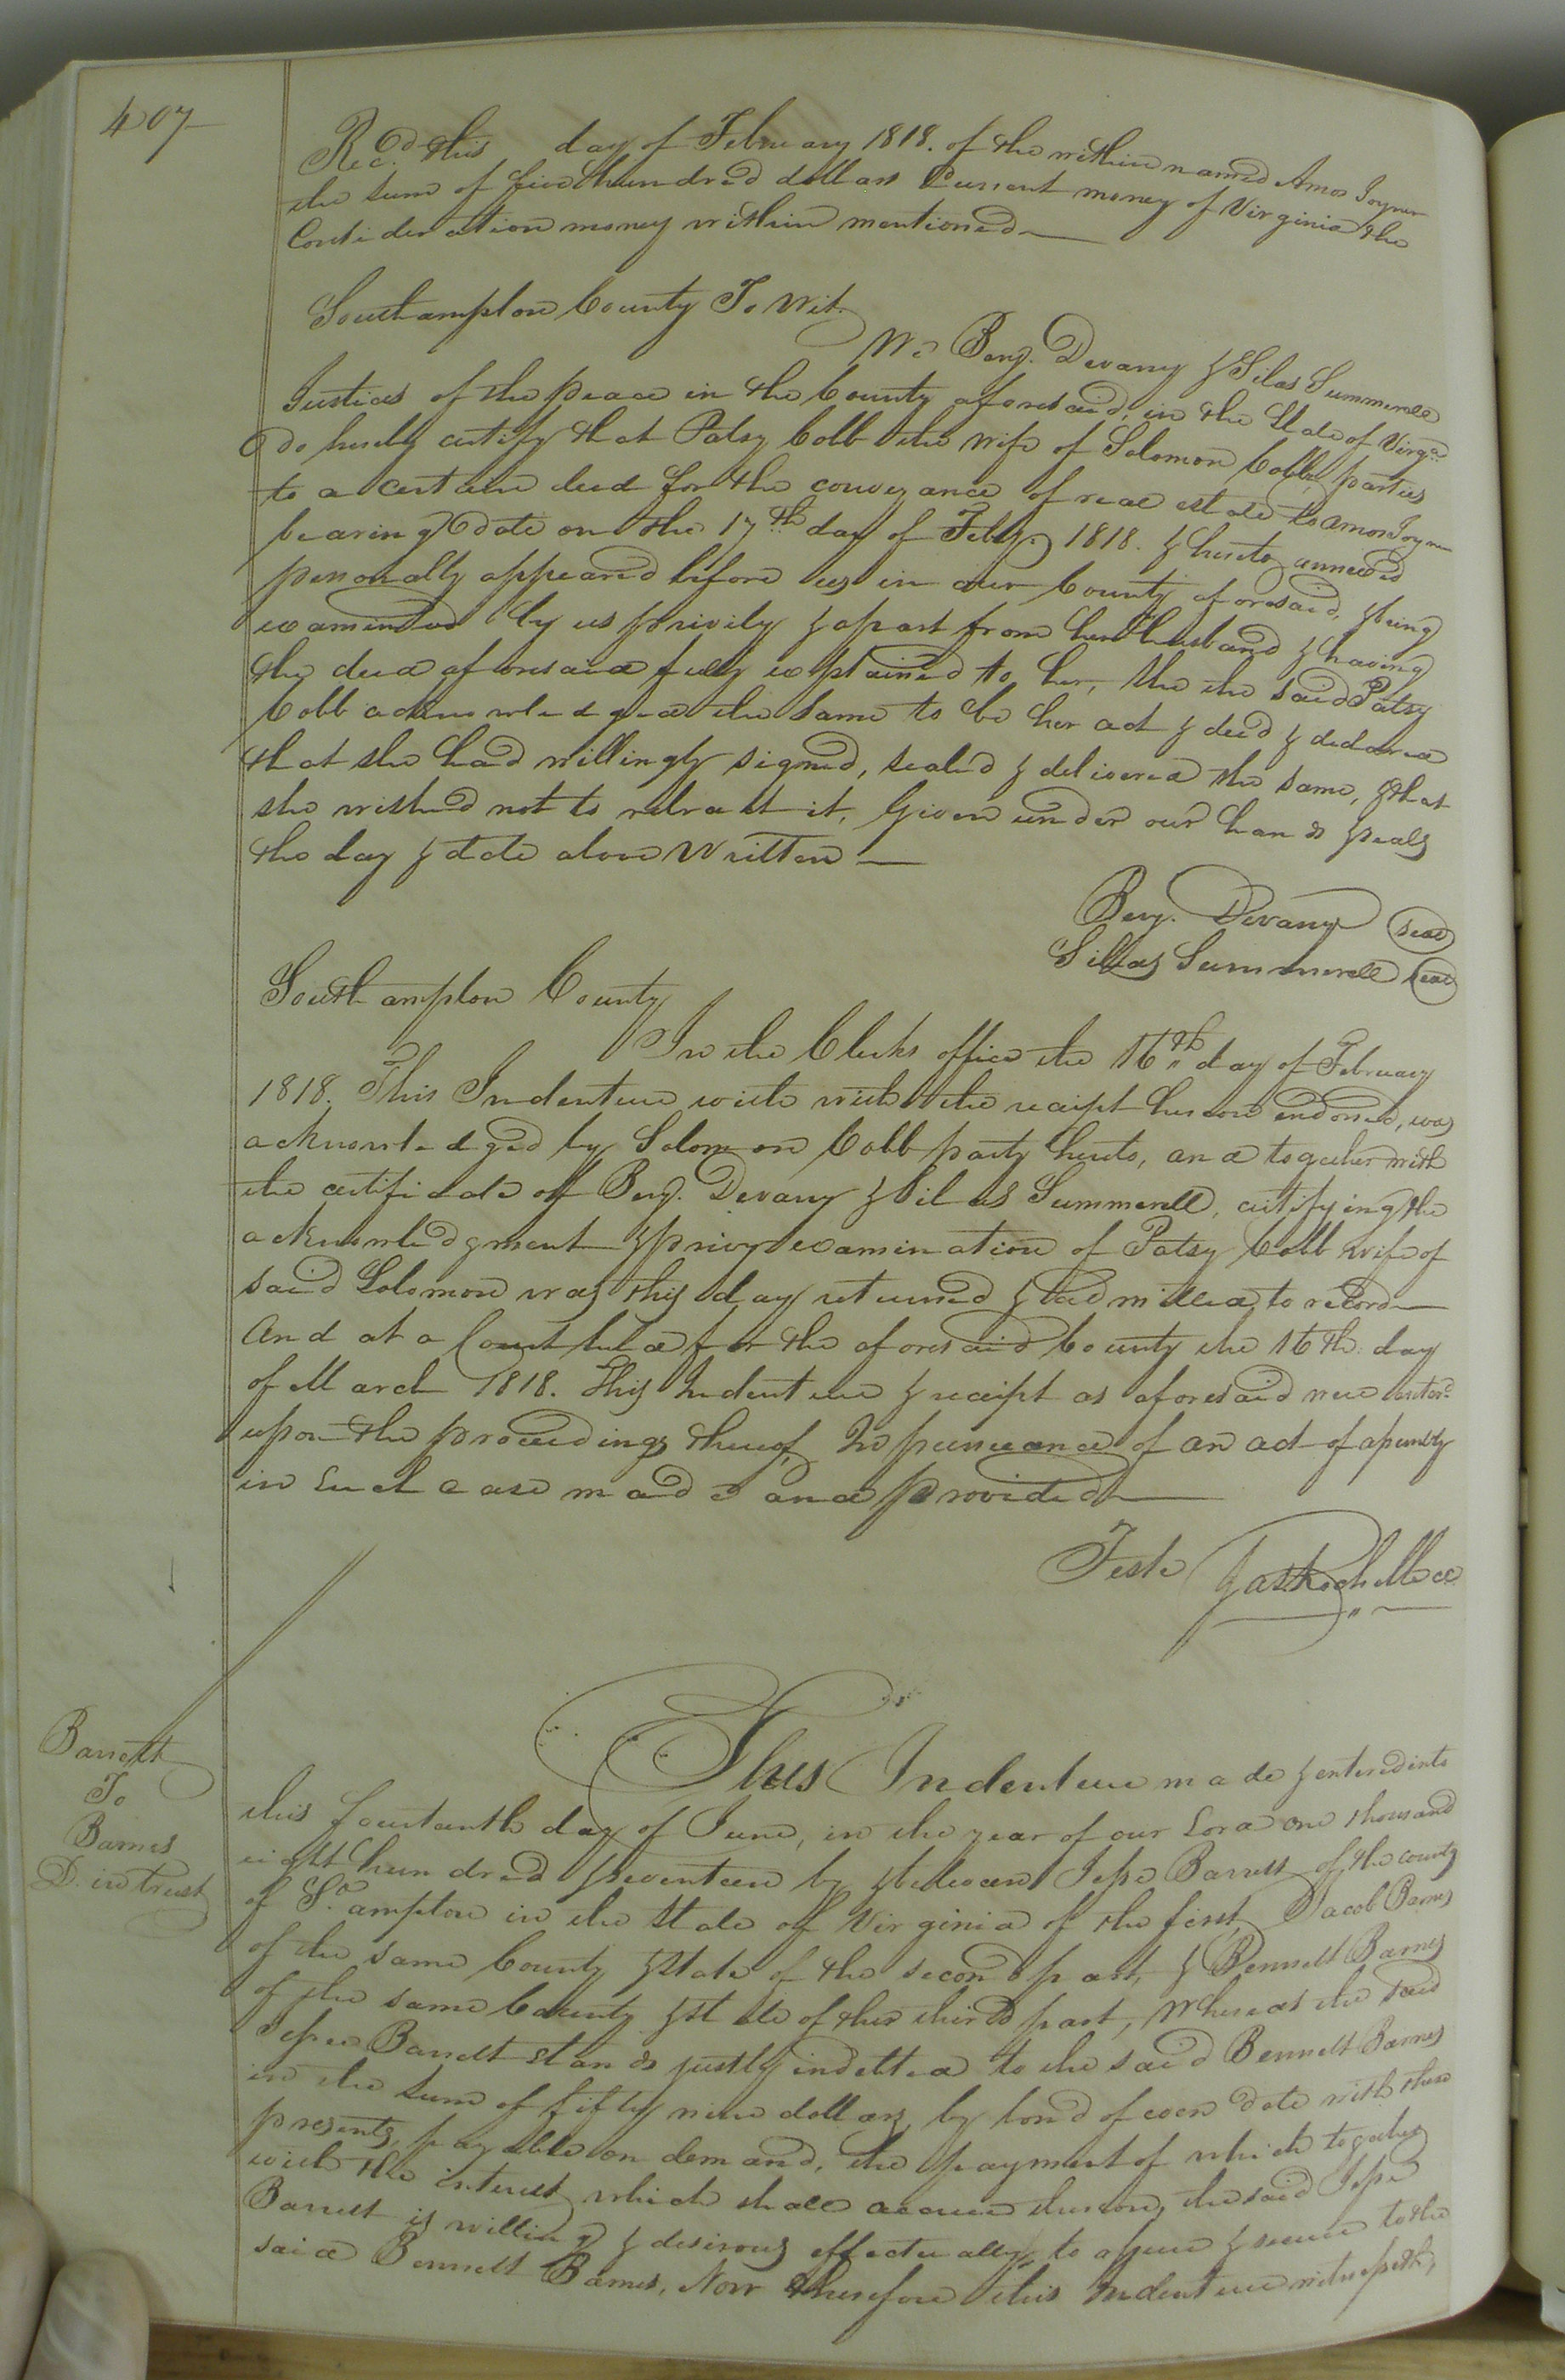 407
Rec.d this day of February 1818. of the within named Amos Joyner
the sum of five hundred dollars Current money of Virginia the
Consideration money within mentioned
Southampton County To Wit.
We Benj. Devany & Silas Summerell
Justices of the peace in the County aforesaid, in the State of Virga.
do hereby certify that Patsy Cobb the wife of Solomon Cobb, parties
to a certain deed for the conveyance of real estate to Amos Joyner
bearing date on the 17th day of Feby. 1818. & hereto annexed
personally appeared before us in our County aforesaid, & being
examined by us privily & apart from her husband & having
the deed aforesaid fully explained to her, she the said Patsy
Cobb acknowledged the same to be her act & deed & declared
that she had willingly signed, sealed & delivered the same, & that
she wished not to retract it. Given under our hands & seals
the day & date above Written
Benj. Devany seal
Silas Summerell seal
Southampton County
In the Clerks office the 16th day of February
1818. This Indenture with the receipt hereon endorsed, was
acknowledged by Solomon Cobb party hereto, and together with
the certificate of Benj. Devany & Silas Summerell, certifying the
acknowledgment & privy examination of Patsy Cobb wife of
said Solomon was this day returned & admitted to record
And at a Court held for the aforesaid County the 16th. day
of March 1818. This Indenture & receipt as aforesaid were enterd
upon the proceedings thereof, In pursuance of an act of assembly
in such case made and provided
Teste Jas Rochelle cc
Barrett
To
Barnes
D. in trust
This Indenture made & entered into
this fourteenth day of June, in the year of our Lord one thousand
eight hundred & seventeen by & between Jesse Barrett of the county
of So. ampton in the State of Virginia of the first, Jacob Barnes
of the same County & State of the second part, & Bennett Barnes
of the same County & state of the third part, Whereas the said
Jesse Barrett stands justly indebted to the said Bennett Barnes
in the sum of fifty nine dollars, by bond of even date with these
presents, payable on demand, the payment of which together
with the interest which shall accrue thereon, the said Jesse
Barrett is willing & desirous effectually to assure & secure to the
said Bennett Barnes, Now therefore this Indenture witnesseth,